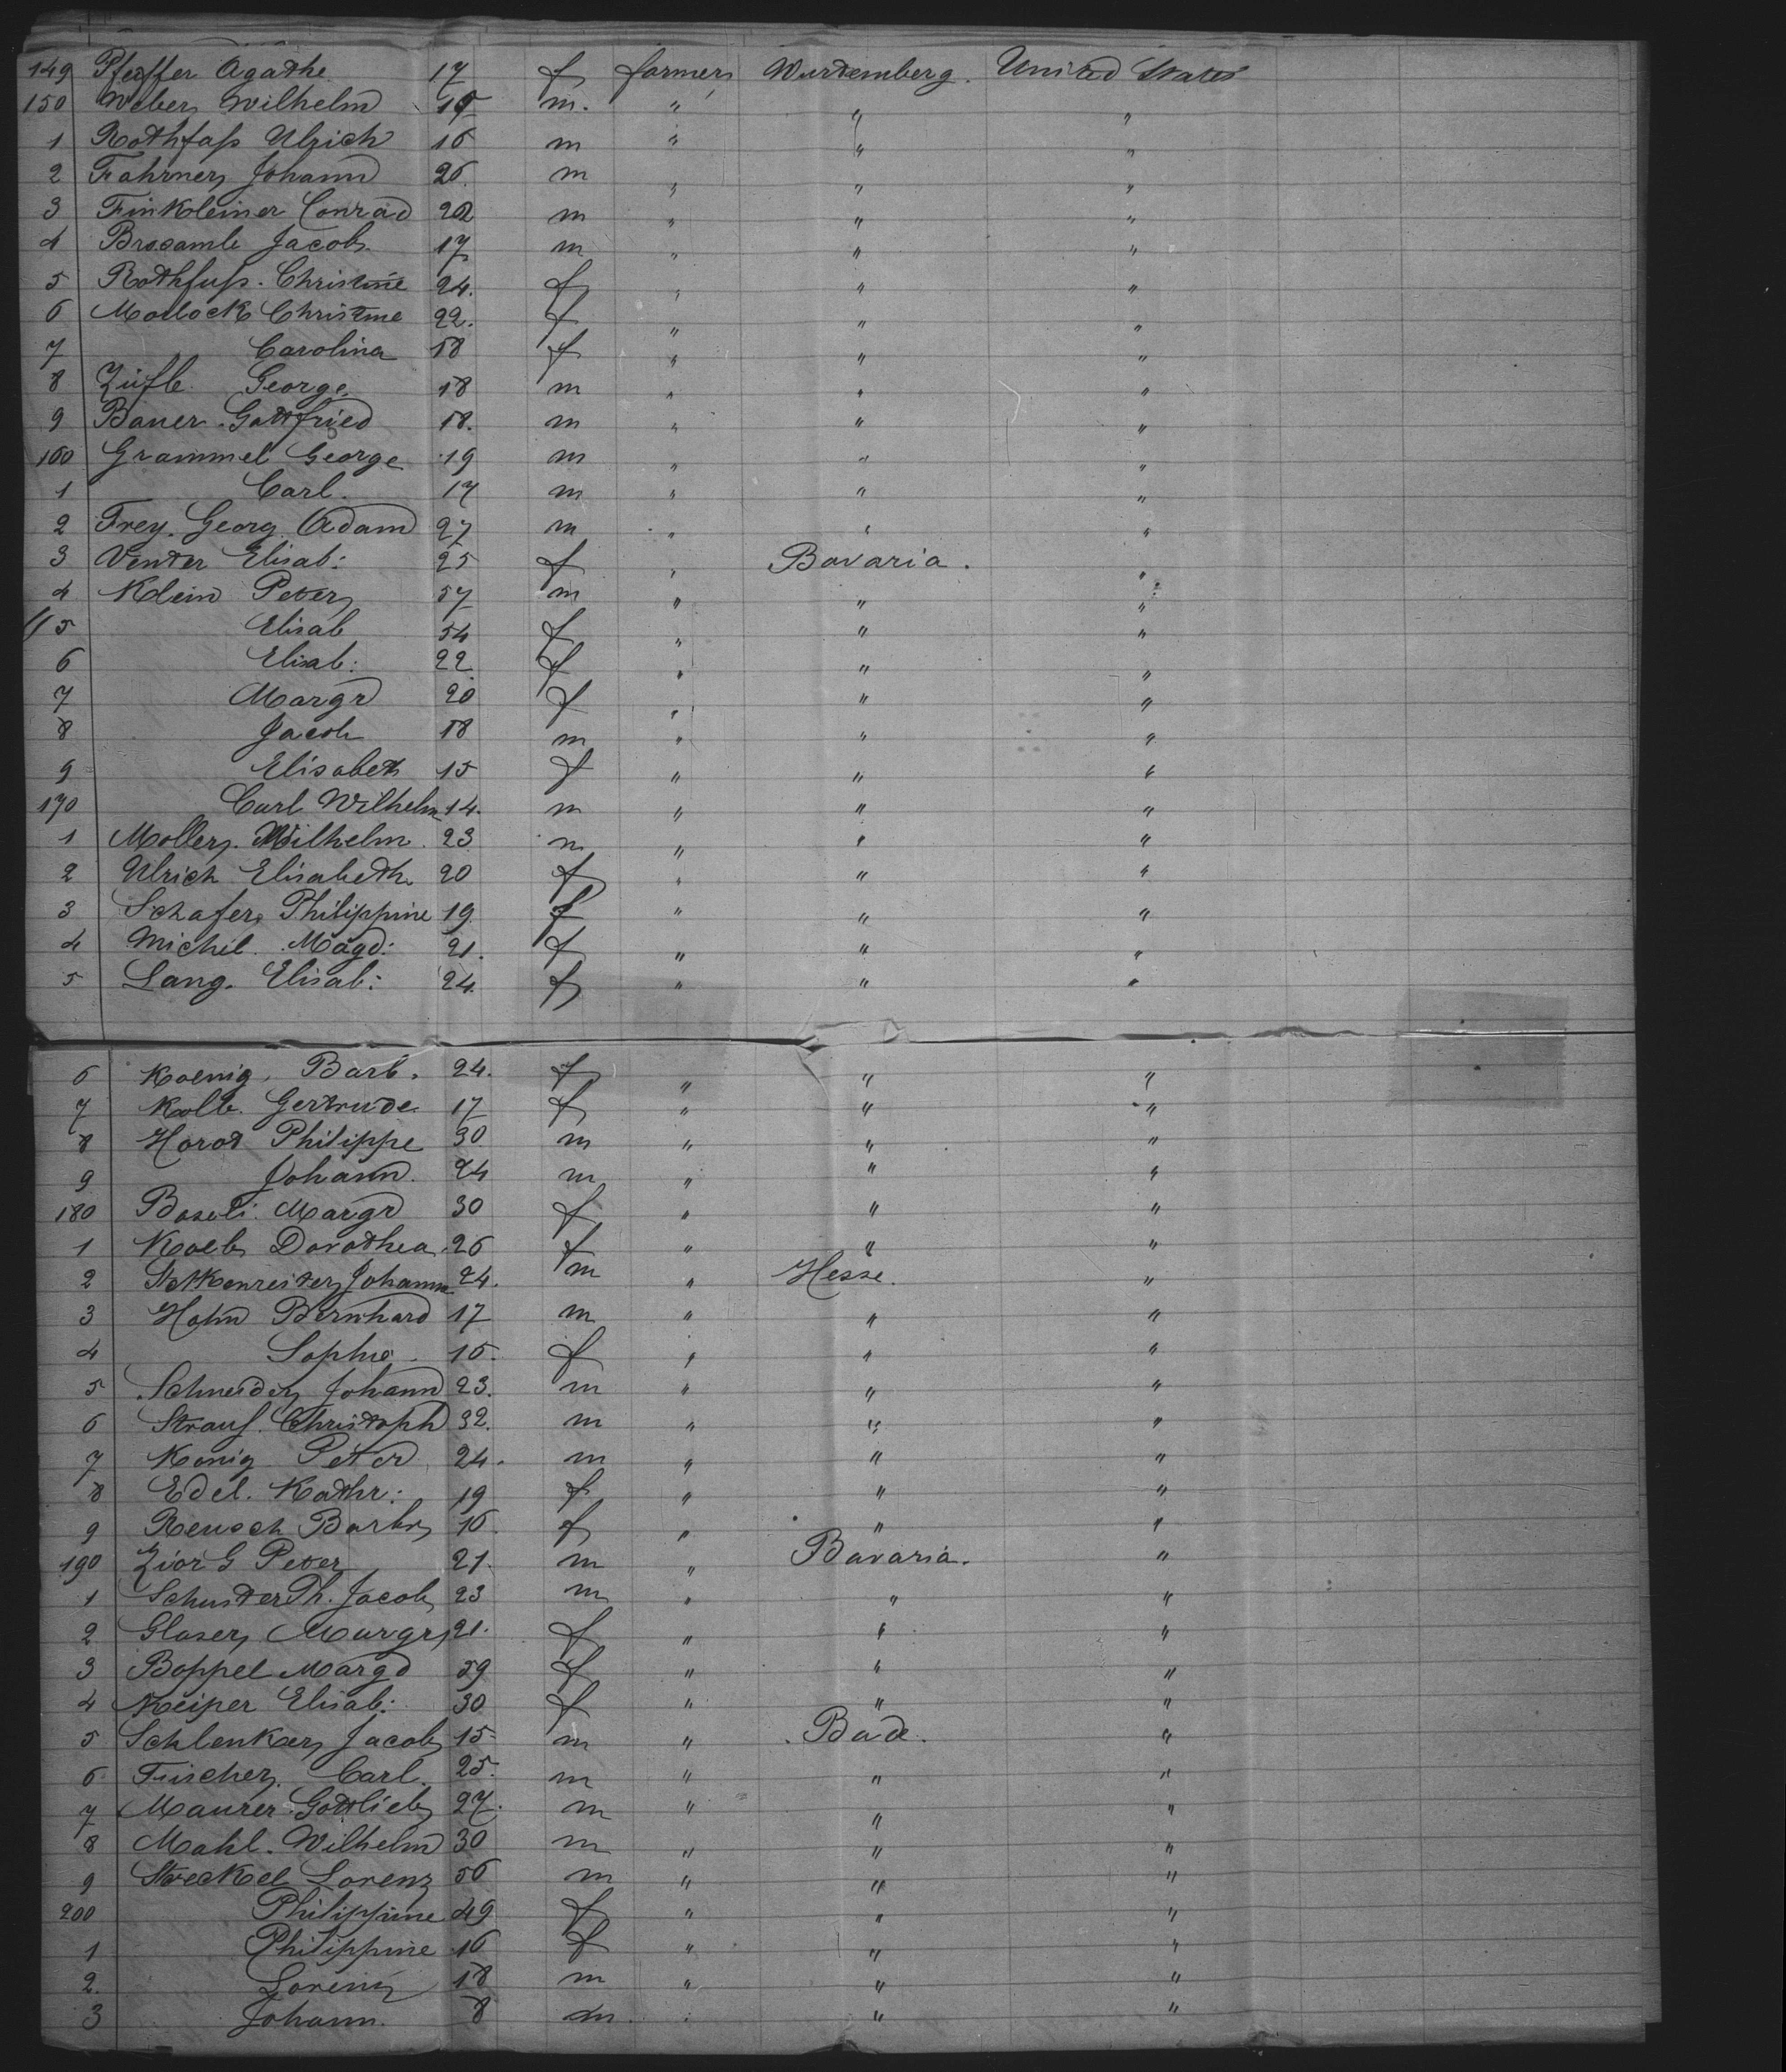 149 Pfeiffer Agathe 17 f farmers Wurtemberg. United States
150 Weber Wilhelm m. " " "
1 Rothfaſs Ulrich 16 m " " "
2 Fahrner Johann 26. m " " "
3 Finkbeiner Conrad 22 m " " "
4 Jacob 17 m " " "
5 Rothfuſs. Christine 24. f " " "
6 Christine 22. f " " "
7 Carolina 18 f " " "
8 Züfle George. 18 m " " "
9 Bauer. Gottfried 18. m " " "
160 Grammel George 19 m " " "
1 Carl. 17 m " " "
2 Frey. Georg. Adam 27 m " " "
3 Venter Elisab: 25 f " Bavaria. "
4 Klein Peter 57 m " " "
5 Elisab 54 f " " "
6 Elisab: 22 f " " "
7 Margr 20 f " " "
8 Jacob 18 m " " "
9 Elisabeth 15 f " " "
170 Carl Wilhelm 14. m " " "
1 Moller. Wilhelm. 23 m " " "
2 Ulrich Elisabeth 20 f " " "
3 Schafer Philippine 19 f " " "
4 Michel. Magd: 21. f " " "
5 Lang. Elisab: 24. f " " "
6 Koenig. Barb. 24. f " " "
7 Kolb. Gertrude. 17 f " " "
8 Philippe 30 m " " "
9 Johann. 24 m " " "
180 Margr 30 f " " "
1 Dorothea. 26 f " " "
2 Johann 24. m " Hesse. "
3 Hahn Bernhard 17 m " " "
4 Sophie. f " " "
5 Schneider Johann 23. m " " "
6 Strauſ. Christoph 32. m " " "
7 Konig Peter 24. m " " "
8 Edel. Kathr: 19 f " " "
9 Reusch Barbr 16. f " " "
190 Zior G Peter 21. m " Bavaria. "
1 Schuster Ph. Jacob 23 m " " "
2 Glaser Margr 21. f " " "
3 Boppel Margd 59 f " " "
4 Keiper Elisab: 30 f " " "
5 Schlenker Jacob 15 m " Bade. "
6 Fischer. Carl. 25. m " " "
7 Maurer. Gottlieb 27. m " " "
8 Mahl. Wilhelm 30 m " " "
9 Streckel Lorenz 56 m " " "
200 Philippine 49 f " " "
1 Philippine 16 f " " "
2. Lorenz 18 m " " "
3 Johann. 8 m. " " "